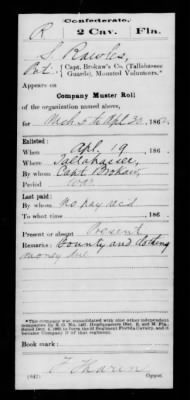 Confederate.
R 2 Cav. Fla.
S. Rawles,
Pvt. Capt. Brokaw's Co. (Tallahassee
Guards), Mounted Volunteers.*
Appears on
Company Muster Roll
of the organization named above,
for Mch 5 to Apl. 30, 1862.
Enlisted:
When Apl. 19, 186 .
Where Tallahassee,
By whom Capt. Brokaw,
Period war
Last paid:
By whom No pay rec'd
To what time , 186 .
Present or absent Present
Remarks: Bounty and clothing
money due
*This company was consolidated with nine other independent
Book mark:
(642) Copyist.